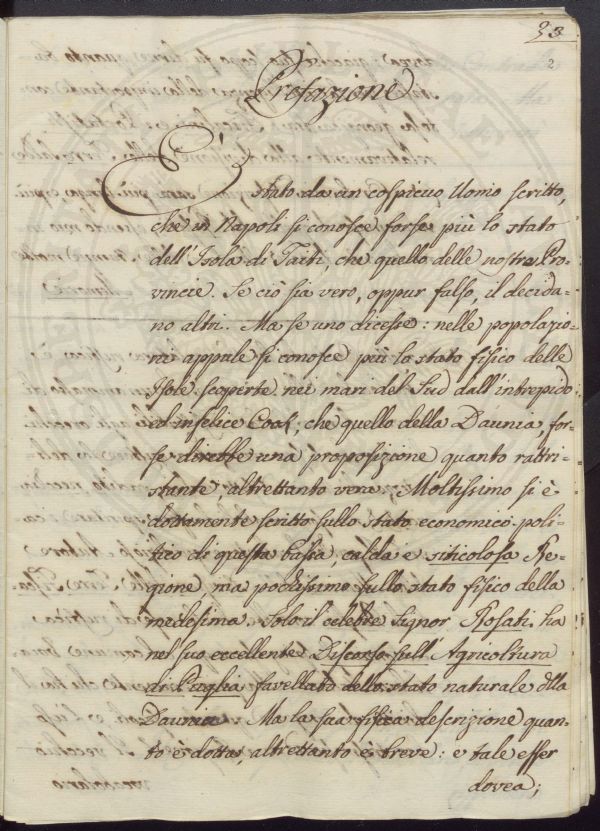 33
2
Prefazione
È stato da un cospicuo Uomo scritto,
che in Napoli si conosce forse più lo stato
dell'Isola di Taiti, che quello delle nostre Pro-
vincie. Se ciò sia vero, oppur falso, il decida-
no altri. Ma se uno dicesse: nelle popolazio-
ni appule si conosce più lo stato fisico delle
Isole scoperte nei mari del Sud dall'intrepido
ed infelice Cook, che quello della Daunia, for-
se direbbe una proposizione quanto rattri-
stante, altrettanto vera. Moltissimo si è
dottamente scritto sullo stato economico-poli-
tico di questa bassa, calda e siticolosa Re-
gione, ma pochissimo sullo stato fisico della
medesima. Solo il celebre Signor Rosati ha
nel suo eccellente Discorso sull'Agricoltura
di Puglia favellato dello stato naturale dlla
Daunia. Ma la sua fisica descrizione quan-
to è dotta, altrettanto è breve: e tale esser
dovea;